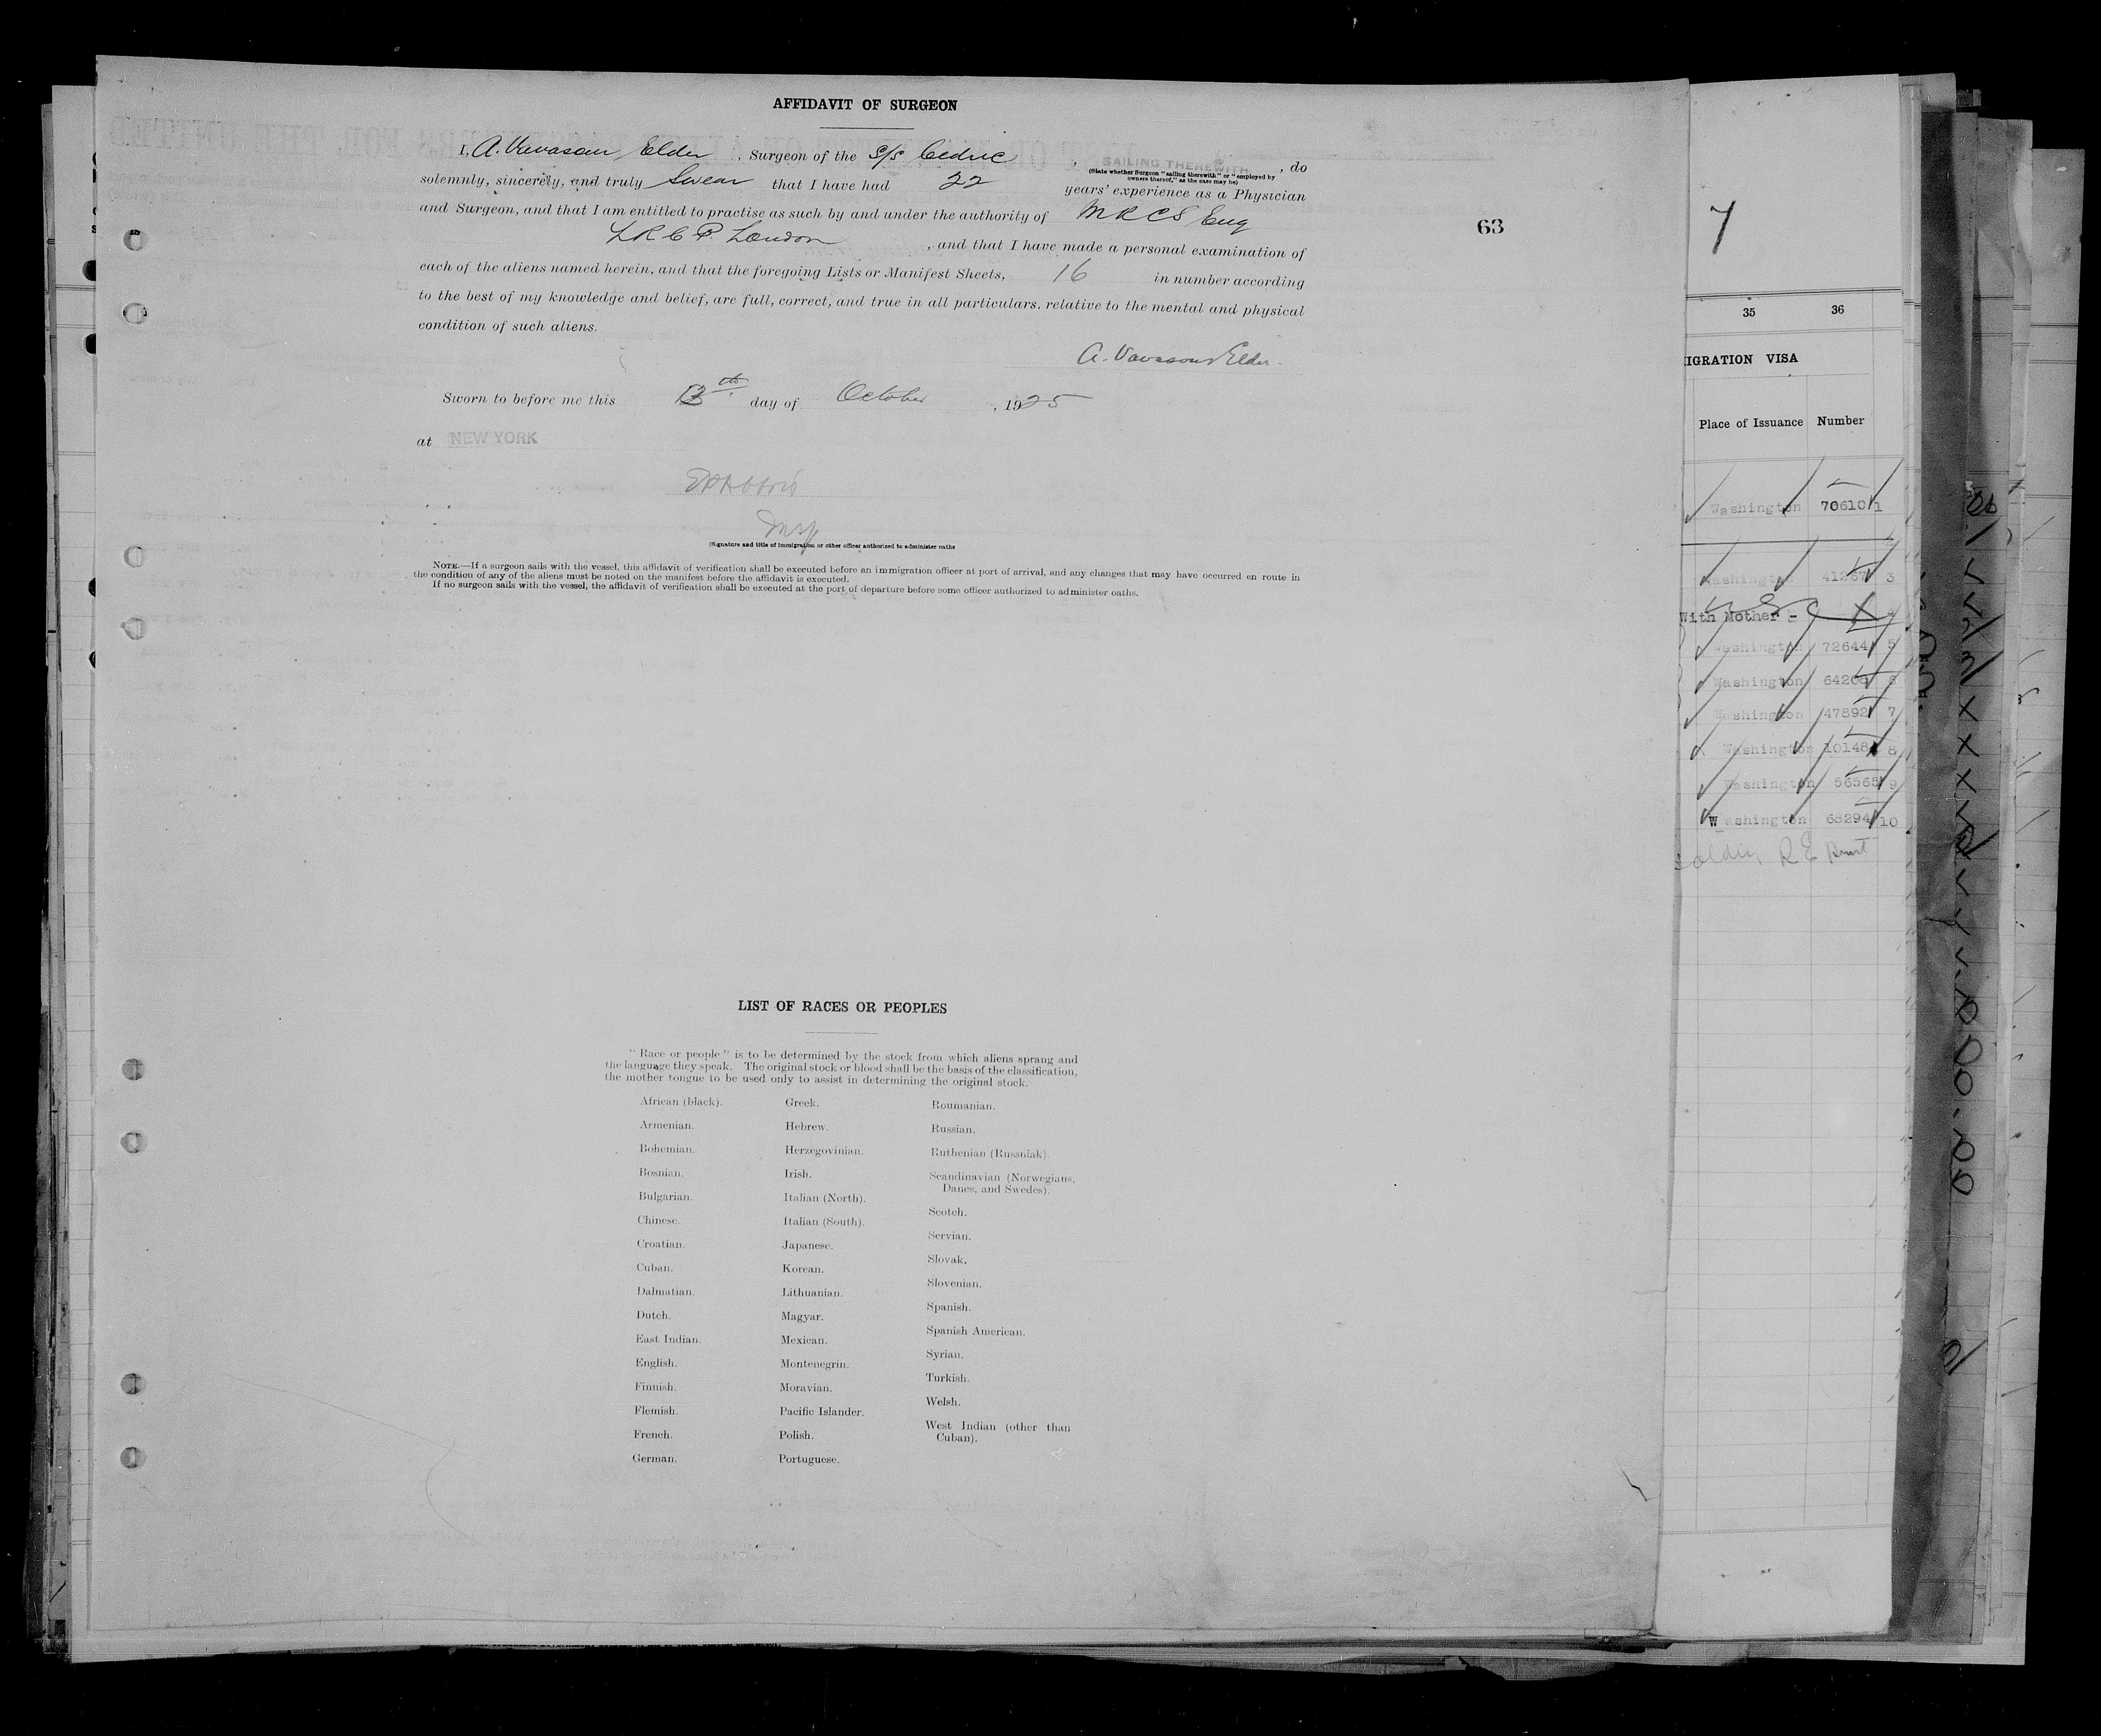 AFFIDAVIT OF SURGEON
I, A. Vavasour Elder, Surgeon of the S/S Cedric, SAILING THEREWITH, do
(State whether Surgeon "sailing therewith" or "employed by
owners thereof," as the case may be)
solemnly, sincerely, and truly Swear that I have had 22 years' experience as a Physician
and Surgeon, and that I am entitled to practise as such by and under the authority of MRCS Eng
LRCP. London, and that I have made a personal examination of
each of the aliens named herein, and that the foregoing Lists or Manifest Sheets, 16 in number according
to the best of my knowledge and belief, are full, correct, and true in all particulars, relative to the mental and physical
condition of such aliens.
A. Vavasour Elder.
Sworn to before me this th day of October, 1925
at NEW YORK
Insp
(Signature and title of immigration or other officer authorized to administer oaths
NOTE.—If a surgeon sails with the vessel, this affidavit of verification shall be executed before an immigration officer at port of arrival, and any changes that may have occurred en route in
the condition of any of the aliens must be noted on the manifest before the affidavit is executed.
If no surgeon sails with the vessel, the affidavit of verification shall be executed at the port of departure before some officer authorized to administer oaths.
63
LIST OF RACES OR PEOPLES
"Race or people" is to be determined by the stock from which aliens sprang and
the language they speak. The original stock or blood shall be the basis of the classification,
the mother tongue to be used only to assist in determining the original stock.
African (black).
Armenian.
Bohemian.
Bosnian.
Bulgarian.
Chinese.
Croatian.
Cuban.
Dalmatian.
Dutch.
East Indian.
English.
Finnish.
Flemish.
French.
German.
Greek.
Hebrew.
Herzegovinian.
Irish.
Italian (North).
Italian (South).
Japanese.
Korean.
Lithuanian.
Magyar.
Mexican.
Montenegrin.
Moravian.
Pacific Islander.
Polish.
Portuguese.
Roumanian.
Russian.
Ruthenian (Russniak).
Scandinavian (Norwegians,
Danes, and Swedes).
Scotch.
Servian.
Slovak.
Slovenian.
Spanish.
Spanish American.
Syrian.
Turkish.
Welsh.
West Indian (other than
Cuban).
7
35 36
IGRATION VISA
Place of Issuance Number
Washington 70610 1
Washington 41267 3
With Mother -
Washington 72644 5
Washington 6
Washington 47892 7
Washington 8
Washington 56565 9
Washington 68294 10